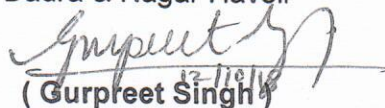 Dadra & Nagar Haveli
Gurpreet S
12/10/18
( Gurpreet Singh )